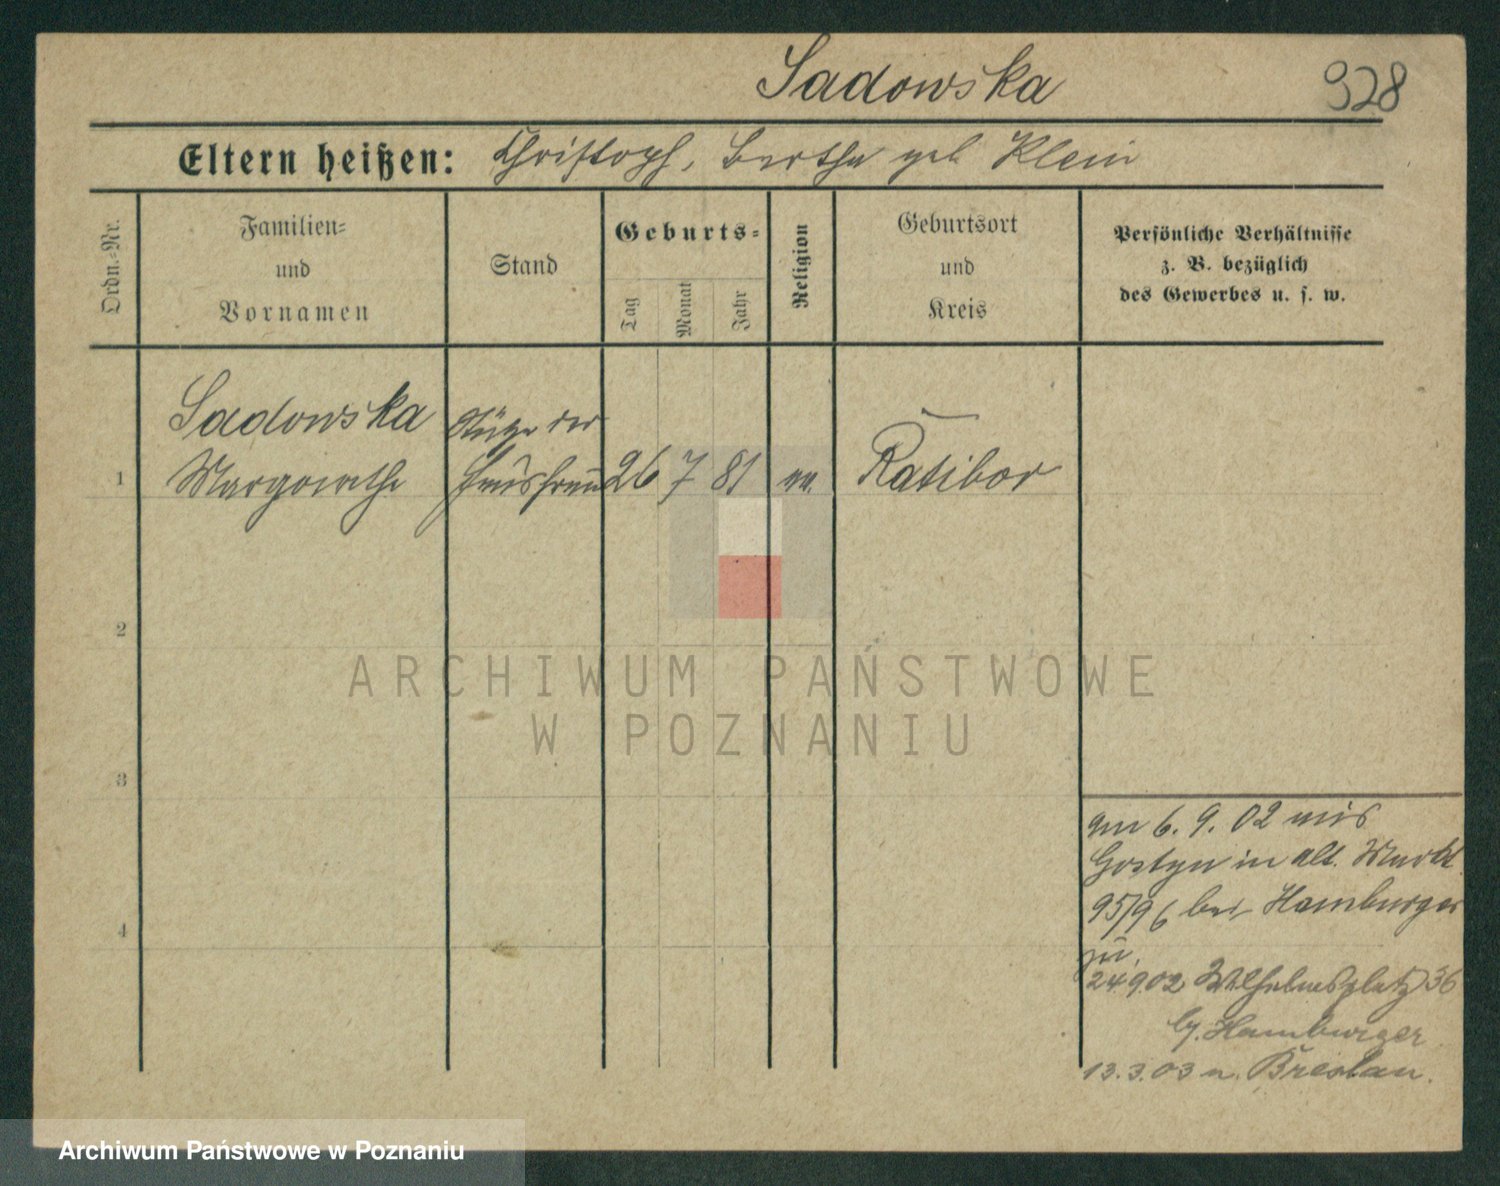 Sadowska 928
Eltern heißen: Christoph, Bertha geb Klein
Ordn.-Nr.
Familien-
und
Vornamen
Stand
Geburts-
Tag
Monat
Jahr
Religion
Geburtsort
und
Kreis
Persönliche Verhältnisse
z. B. bezüglich
des Gewerbes u. s. w.
1
Sadowska
Margarethe
Stütze der
Hausfrau
26 7 81
Ratibor
2
3
4
am 6. 9. 02 aus
Gostyn in alt. Markt
95/96 bei Hamburger
zu.
24.9.02 Wilhelmsplatz 36
b/. Hamburger
13.3.03 n. Breslau.
ARCHIWUM PAŃSTWOWE
W POZNANIU
Archiwum Państwowe w Poznaniu